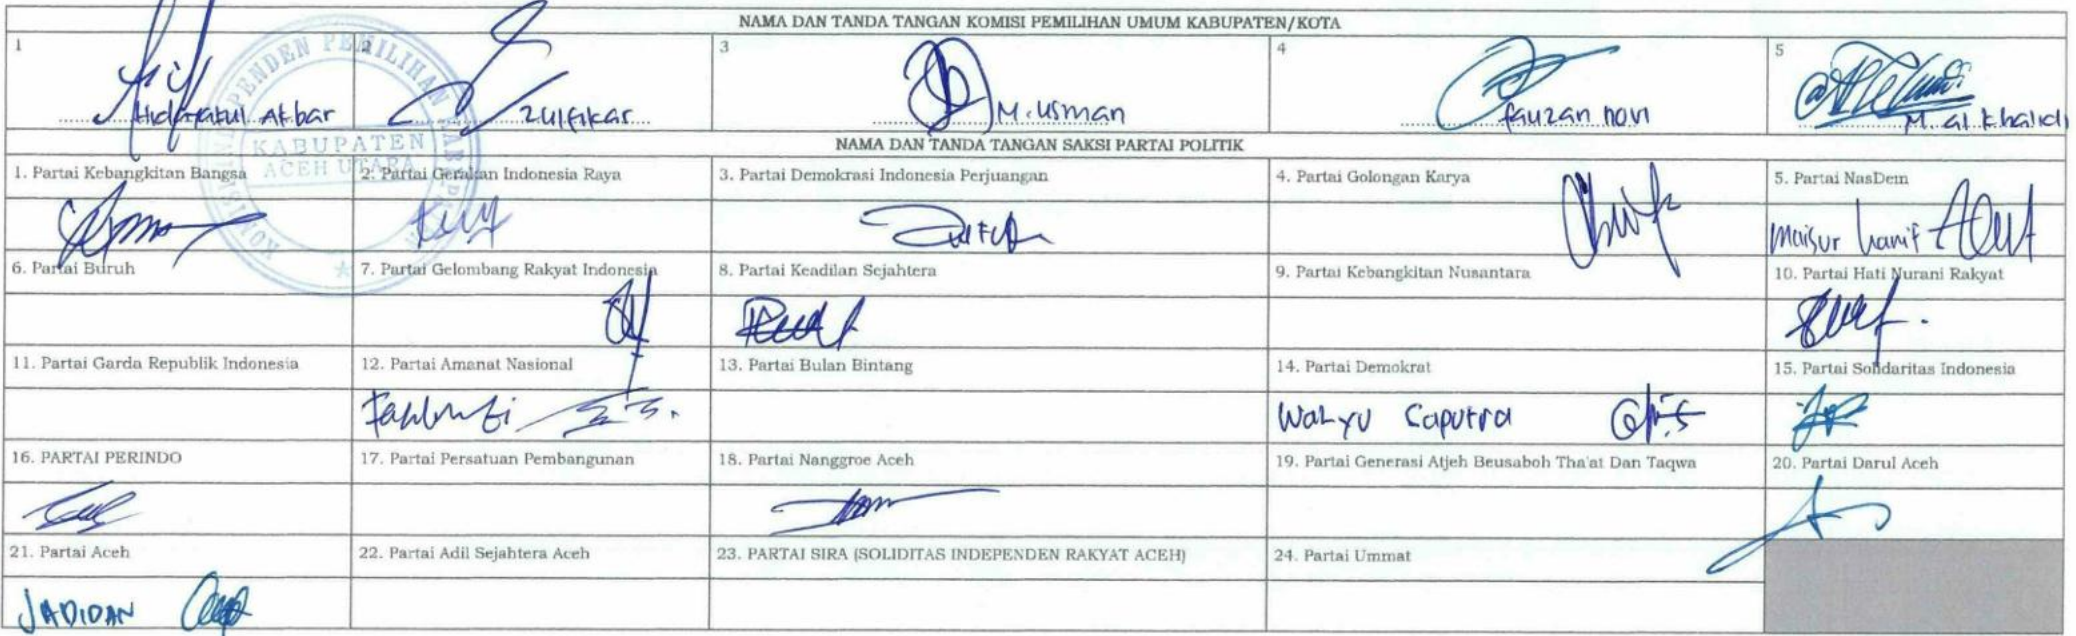 NAMA DAN TANDA TANGAN KOMISI PEMILIHAN UMUM KABUPATEN/KOTA
1 2 3 4 5
Hidayatul Akbar Zulfikar M. Usman fauzan novi M. al khalidi
KOMISI INDEPENDEN PEMILIHAN
KABUPATEN
ACEH UTARA
NAMA DAN TANDA TANGAN SAKSI PARTAI POLITIK
1. Partai Kebangkitan Bangsa 2. Partai Gerakan Indonesia Raya 3. Partai Demokrasi Indonesia Perjuangan 4. Partai Golongan Karya 5. Partai NasDem
Maisur hanif
6. Partai Buruh 7. Partai Gelombang Rakyat Indonesia 8. Partai Keadilan Sejahtera 9. Partai Kebangkitan Nusantara 10. Partai Hati Nurani Rakyat
11. Partai Garda Republik Indonesia 12. Partai Amanat Nasional 13. Partai Bulan Bintang 14. Partai Demokrat 15. Partai Solidaritas Indonesia
Wahyu Saputra
16. PARTAI PERINDO 17. Partai Persatuan Pembangunan 18. Partai Nanggroe Aceh 19. Partai Generasi Atjeh Beusaboh Tha'at Dan Taqwa 20. Partai Darul Aceh
21. Partai Aceh 22. Partai Adil Sejahtera Aceh 23. PARTAI SIRA (SOLIDITAS INDEPENDEN RAKYAT ACEH) 24. Partai Ummat
JADIDAN